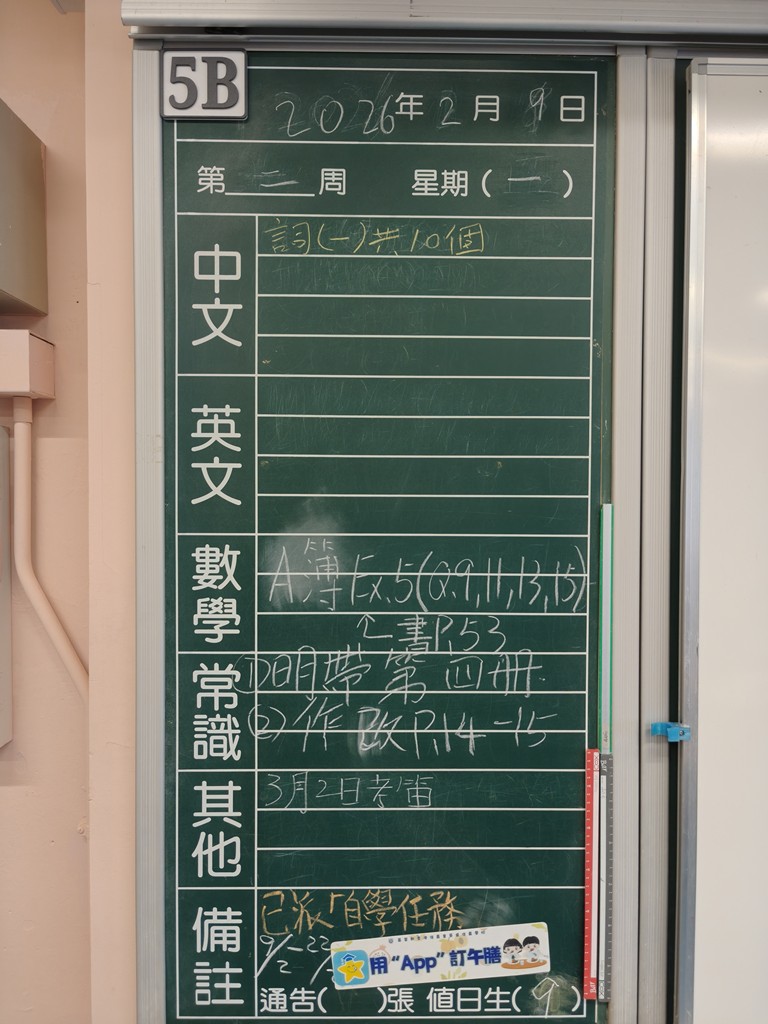 5B
2026年2月9日
第二周 星期(一)
中文
詞(一)共10個
英文
數學
A簿 Ex.5(Q.9,11,13,15)
↖書P.53
常識
①明帶第四冊
②作 改P.14-15
其他
3月2日考笛
備註
已派「自學任務
9/2-23/
用“App”訂午膳
通告( )張 值日生(9)